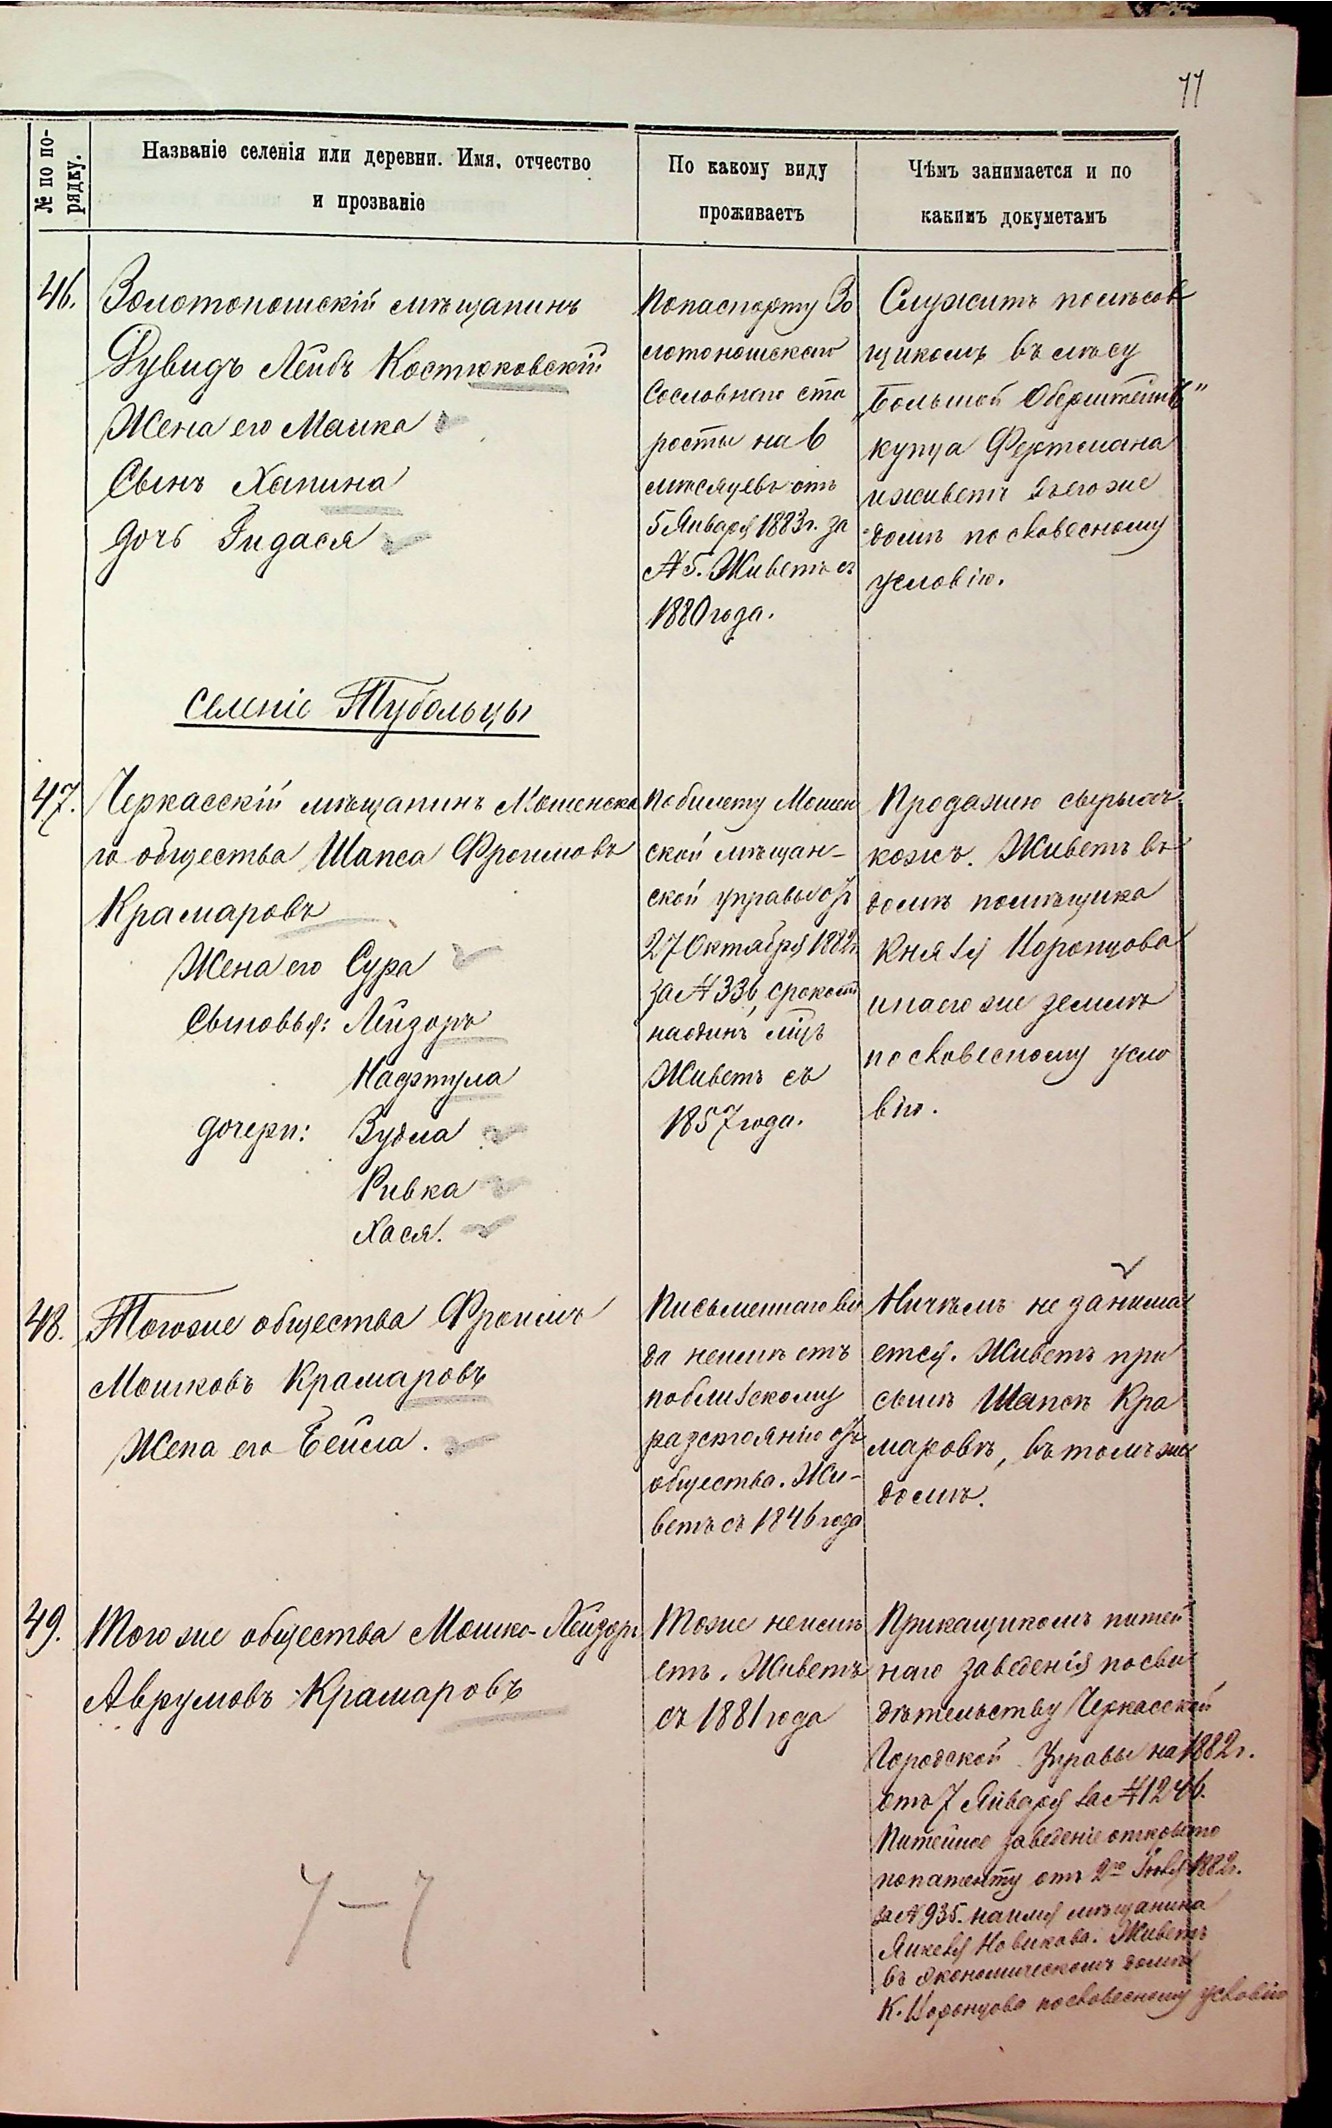 77
№ по по-
рядку.
Названіе селенія или деревни. Имя, отчество
и прозваніе
По какому виду
проживаетъ
Чѣмъ занимается и по
какимъ докуметамъ
46.
Золотоношскій мѣщанинъ
Дувидъ Лейбъ Костюковскій
Жена его Малка
Сынъ Ханина
Дочь Гидася
По паспорту Зо
лотоношскаго
Сословнаго ста
росты на 6
мѣсяцевъ отъ
5 Января 1883 г. за
№ 5. Живетъ съ
1880 года.
Служитъ полѣсов
щикомъ въ лѣсу
„Большой Оберштейнъ"
купца Фертмана
и живетъ въ его же
домѣ по словесному
условію.
Селеніе Тубольцы
47.
Черкасскій мѣщанинъ Мошенска
го общества Шапса Фроимовъ
Крамаровъ
Жена его Сура
Сыновья: Лейзоръ
Нафтула
Дочери: Зудла
Ривка
Хася.
По билету Мошен
ской мѣщан-
ской управы отъ
27 Октября 1882 г.
за № 336, срокомъ
на одинъ мѣц
Живетъ съ
1857 года.
Продажею сырыхъ
кожъ. Живетъ въ
домѣ помѣщика
Князя Воронцова
и на его же землѣ
по словесному усло
вію.
48.
Того же общества Фроимъ
Мошковъ Крамаровъ
Жена его Бейла.
Письменнаго ви
да неимѣетъ
по близкому
разстоянію отъ
общества. Жи-
ветъ съ 1846 года
Ничѣмъ не занима
ется. Живетъ при
сынѣ Шапсѣ Кра
маровѣ, въ томъ же
домѣ.
49.
Того же общества Мошко-Лейзоръ
Аврумовъ Крамаровъ
Тоже неимѣ
етъ. Живетъ
съ 1881 года
Прикащикомъ питей
наго заведенія по сви
дѣтельству Черкасской
Городской Управы на 1882 г.
отъ 7 Января за № 1246.
Питейное заведеніе открыто
по патенту отъ 2го 1882 г.
за № 935. на имя мѣщанина
Янкеля Новикова. Живетъ
въ экономическомъ домѣ
К. Воронцова по словесному условію
7 - 7